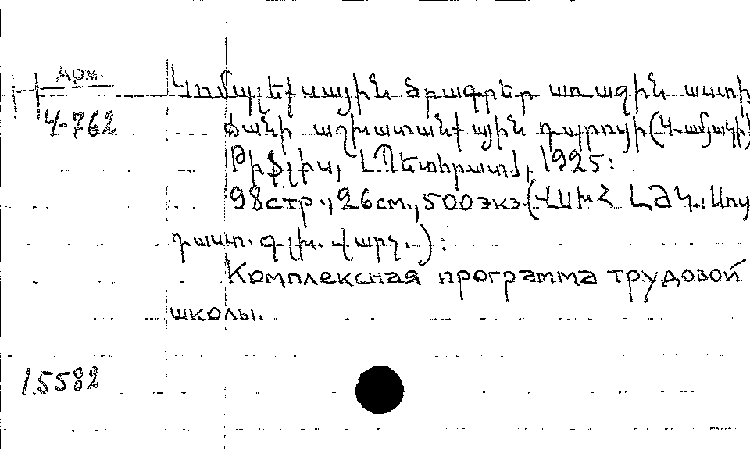 Арм.
4-762
Կոմպլեքսային ծրագրեր առաջին աստի
ճանի աշխատանքային դպրոցի (Կամակի)
Թիֆլիս, Լ.Պետհրատ, 1925:
98стр., 26см., 500экз. (ՎՍԽՀ ԼԺԿ. Սոց
դաստ. գլխ. վարչ.):
Комплексная программа трудовой
школы.
15582